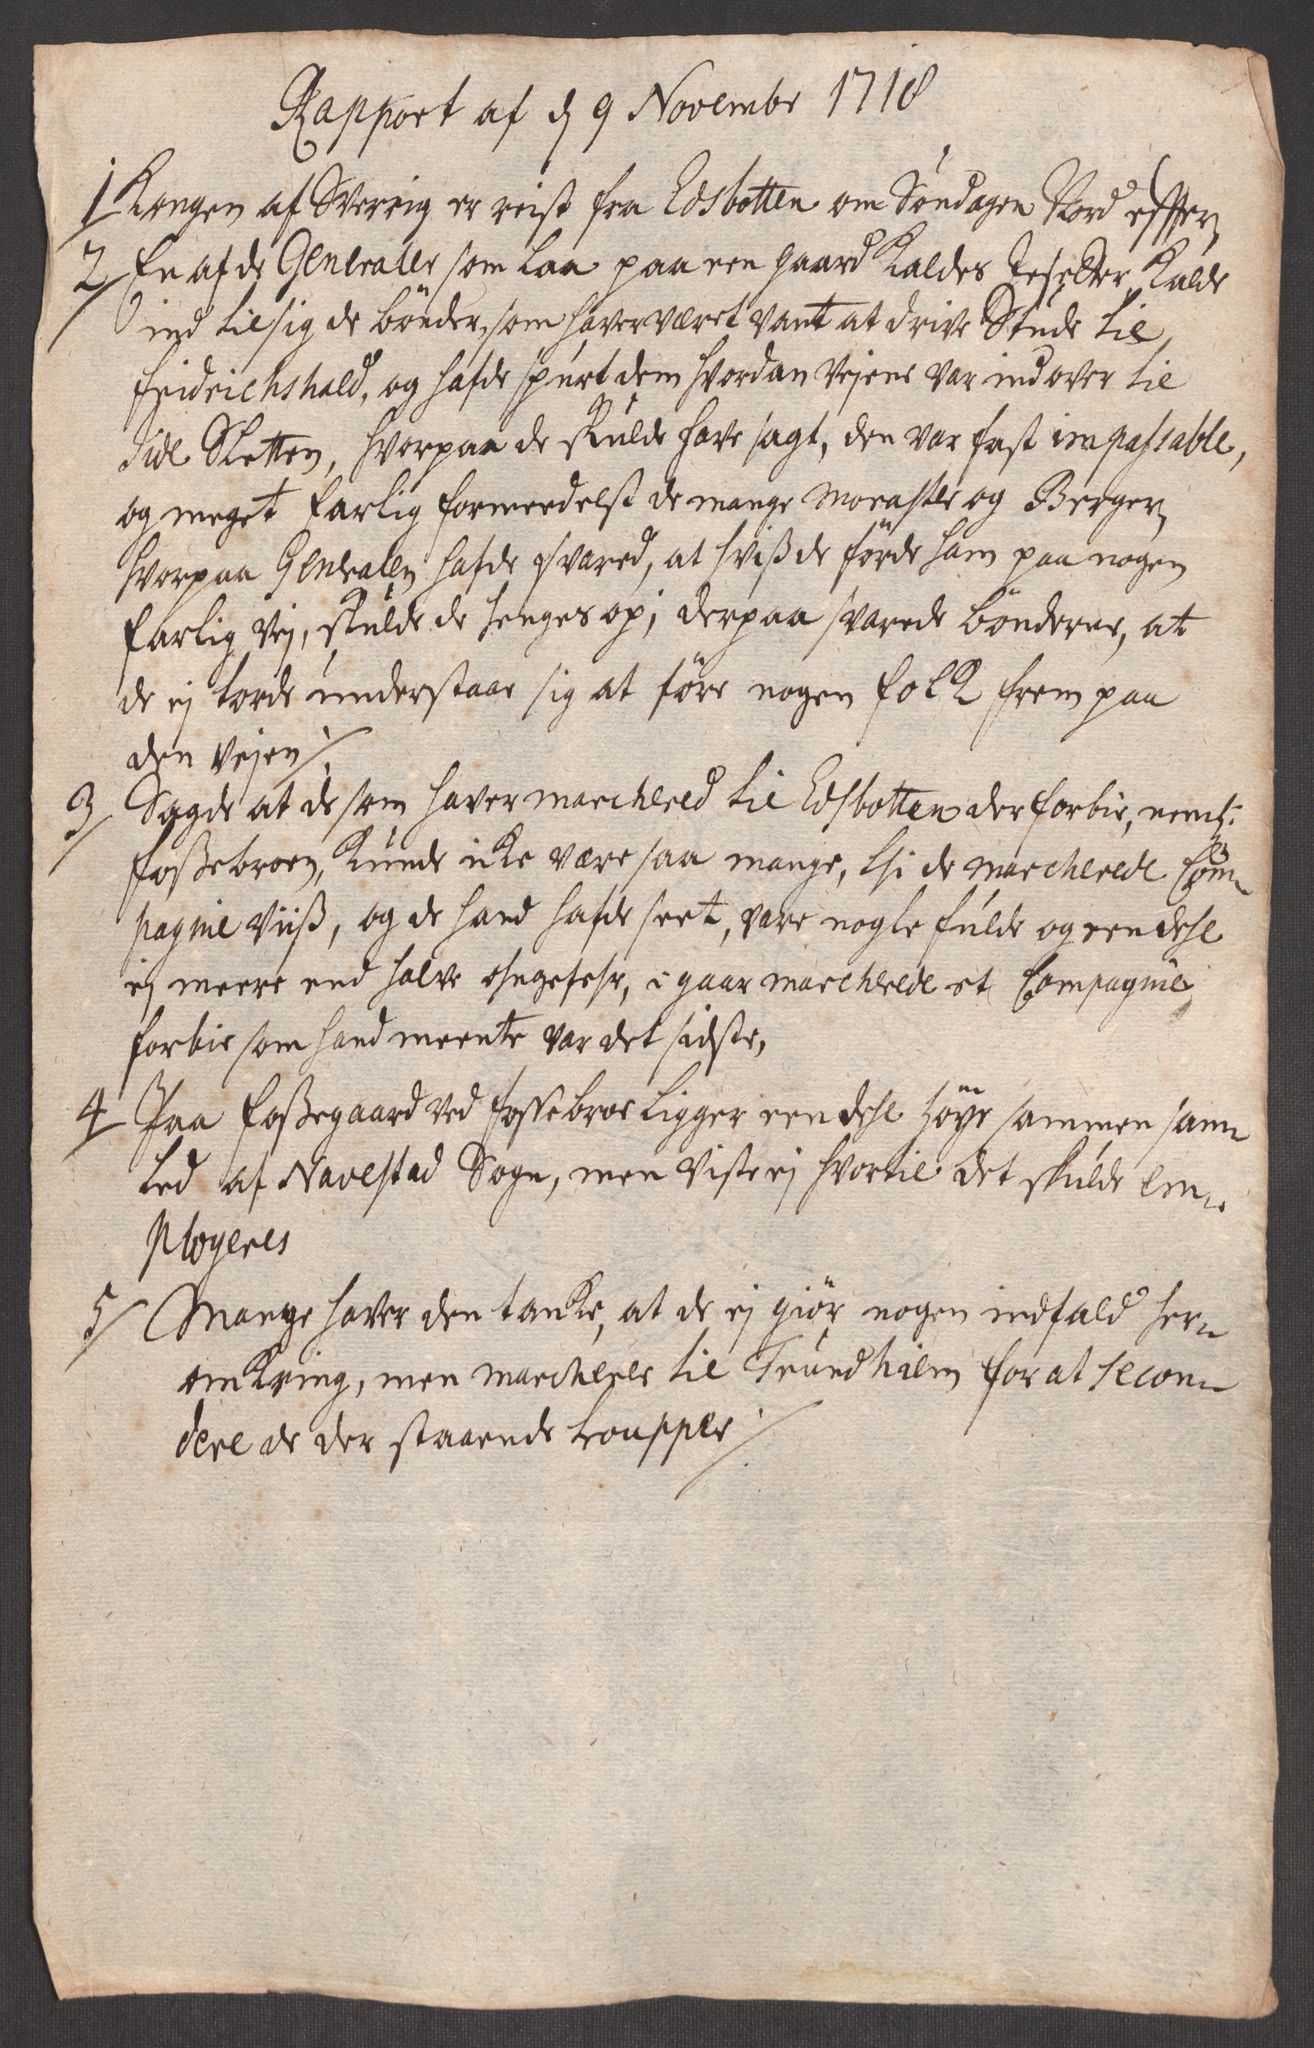 Rapport af d 9 Novembr 1718
1/ Kongen af Sverrig er reist fra Edsbotten om Søndagen Nord effter,
2/ En af de Generaler som laa paa een gaard kaldes kalde
ind til sig de bönder, som haver været vant at drive Stude til
Fridrichshald, og hafde spurt dem hvordan Vejene var ind over til
Side Sletten, hvorpaa de skulde have sagt, den var fast impassable,
og meget farlig formeedelst de mange Moraster og Berger,
hvorpaa Generalen hafde svared, at hviß de förde ham paa nogen
farlig Vej, skulde de henges op; derpaa svarede bönderne, at
de ej torde understaae sig at före nogen folk frem paa
den Vejen /
3/ Sagde at de som haver marchered til Edsbotten der forbie, neml:
foßebroen, kunde icke være saa mange, thi de marcherede Com-
pagnie Viiß, og de hand hafde seet, vare nogle fulde og een dehl
ej meere end halve ohngefehr, i gaar marcherede et Compagnie
forbie som hand meente var det sidste,
4/ Paa foßegaard ved fossebroe ligger een dehl höye sammen sam-
led af Navestad Sogn, men viste ej hvortil det skulde em-
ployeres
5/ Mange haver den tanke, at de ej giör nogen indfald her-
omkring, men marcherer til Trundhiem for at secon-
dere de der staaende troupper /